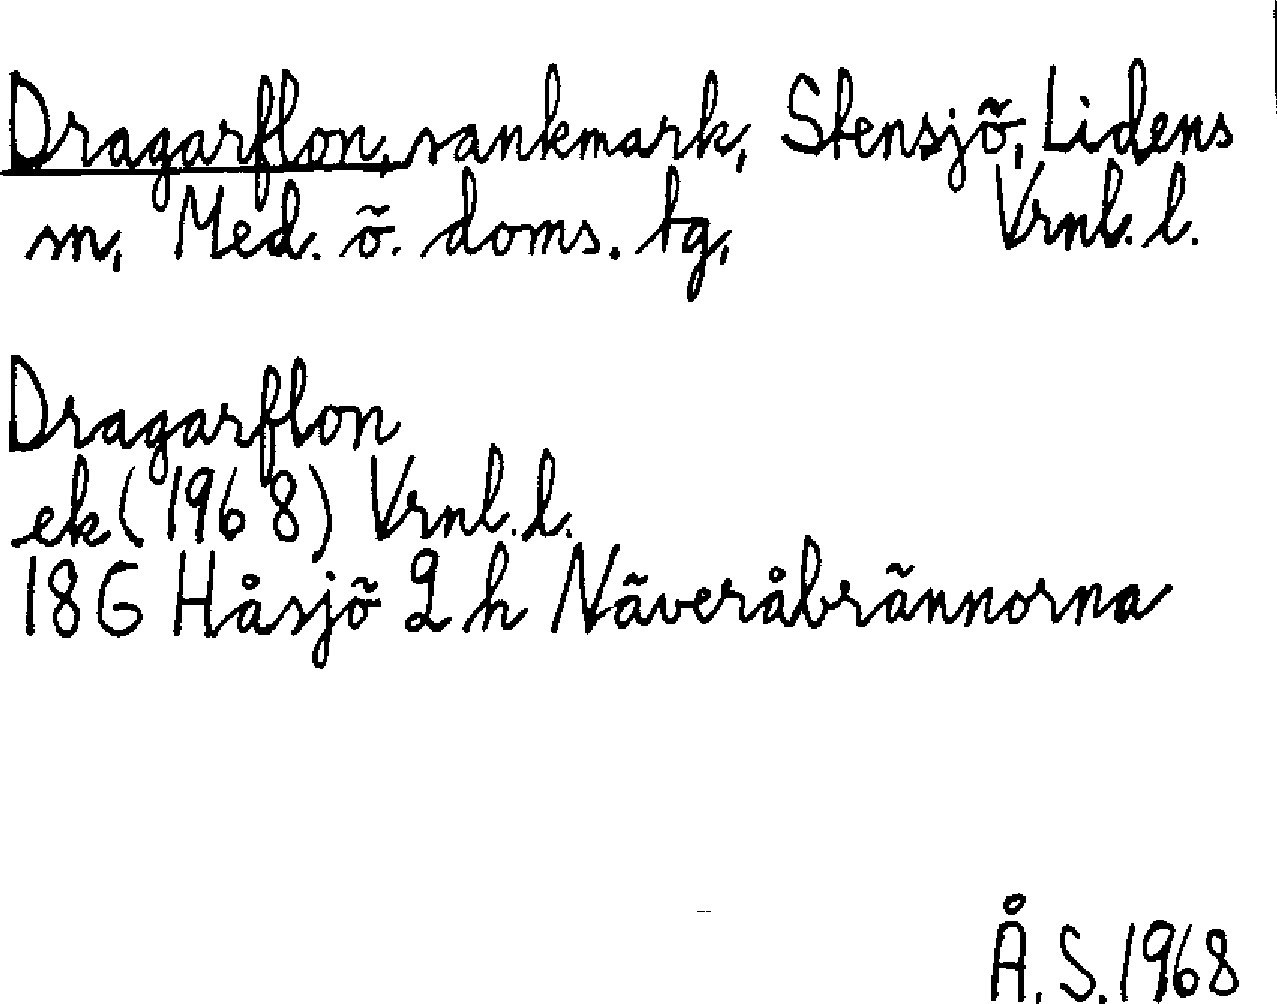 Dragarflon, sankmark, Stensjö, Lidens
sn, Med. ö. doms. tg, Vrnl. l.
Dragarflon
ek (1968) Vrnl. l.
18G Håsjö 2 h Näveråbrännorna
Å. S. 1968